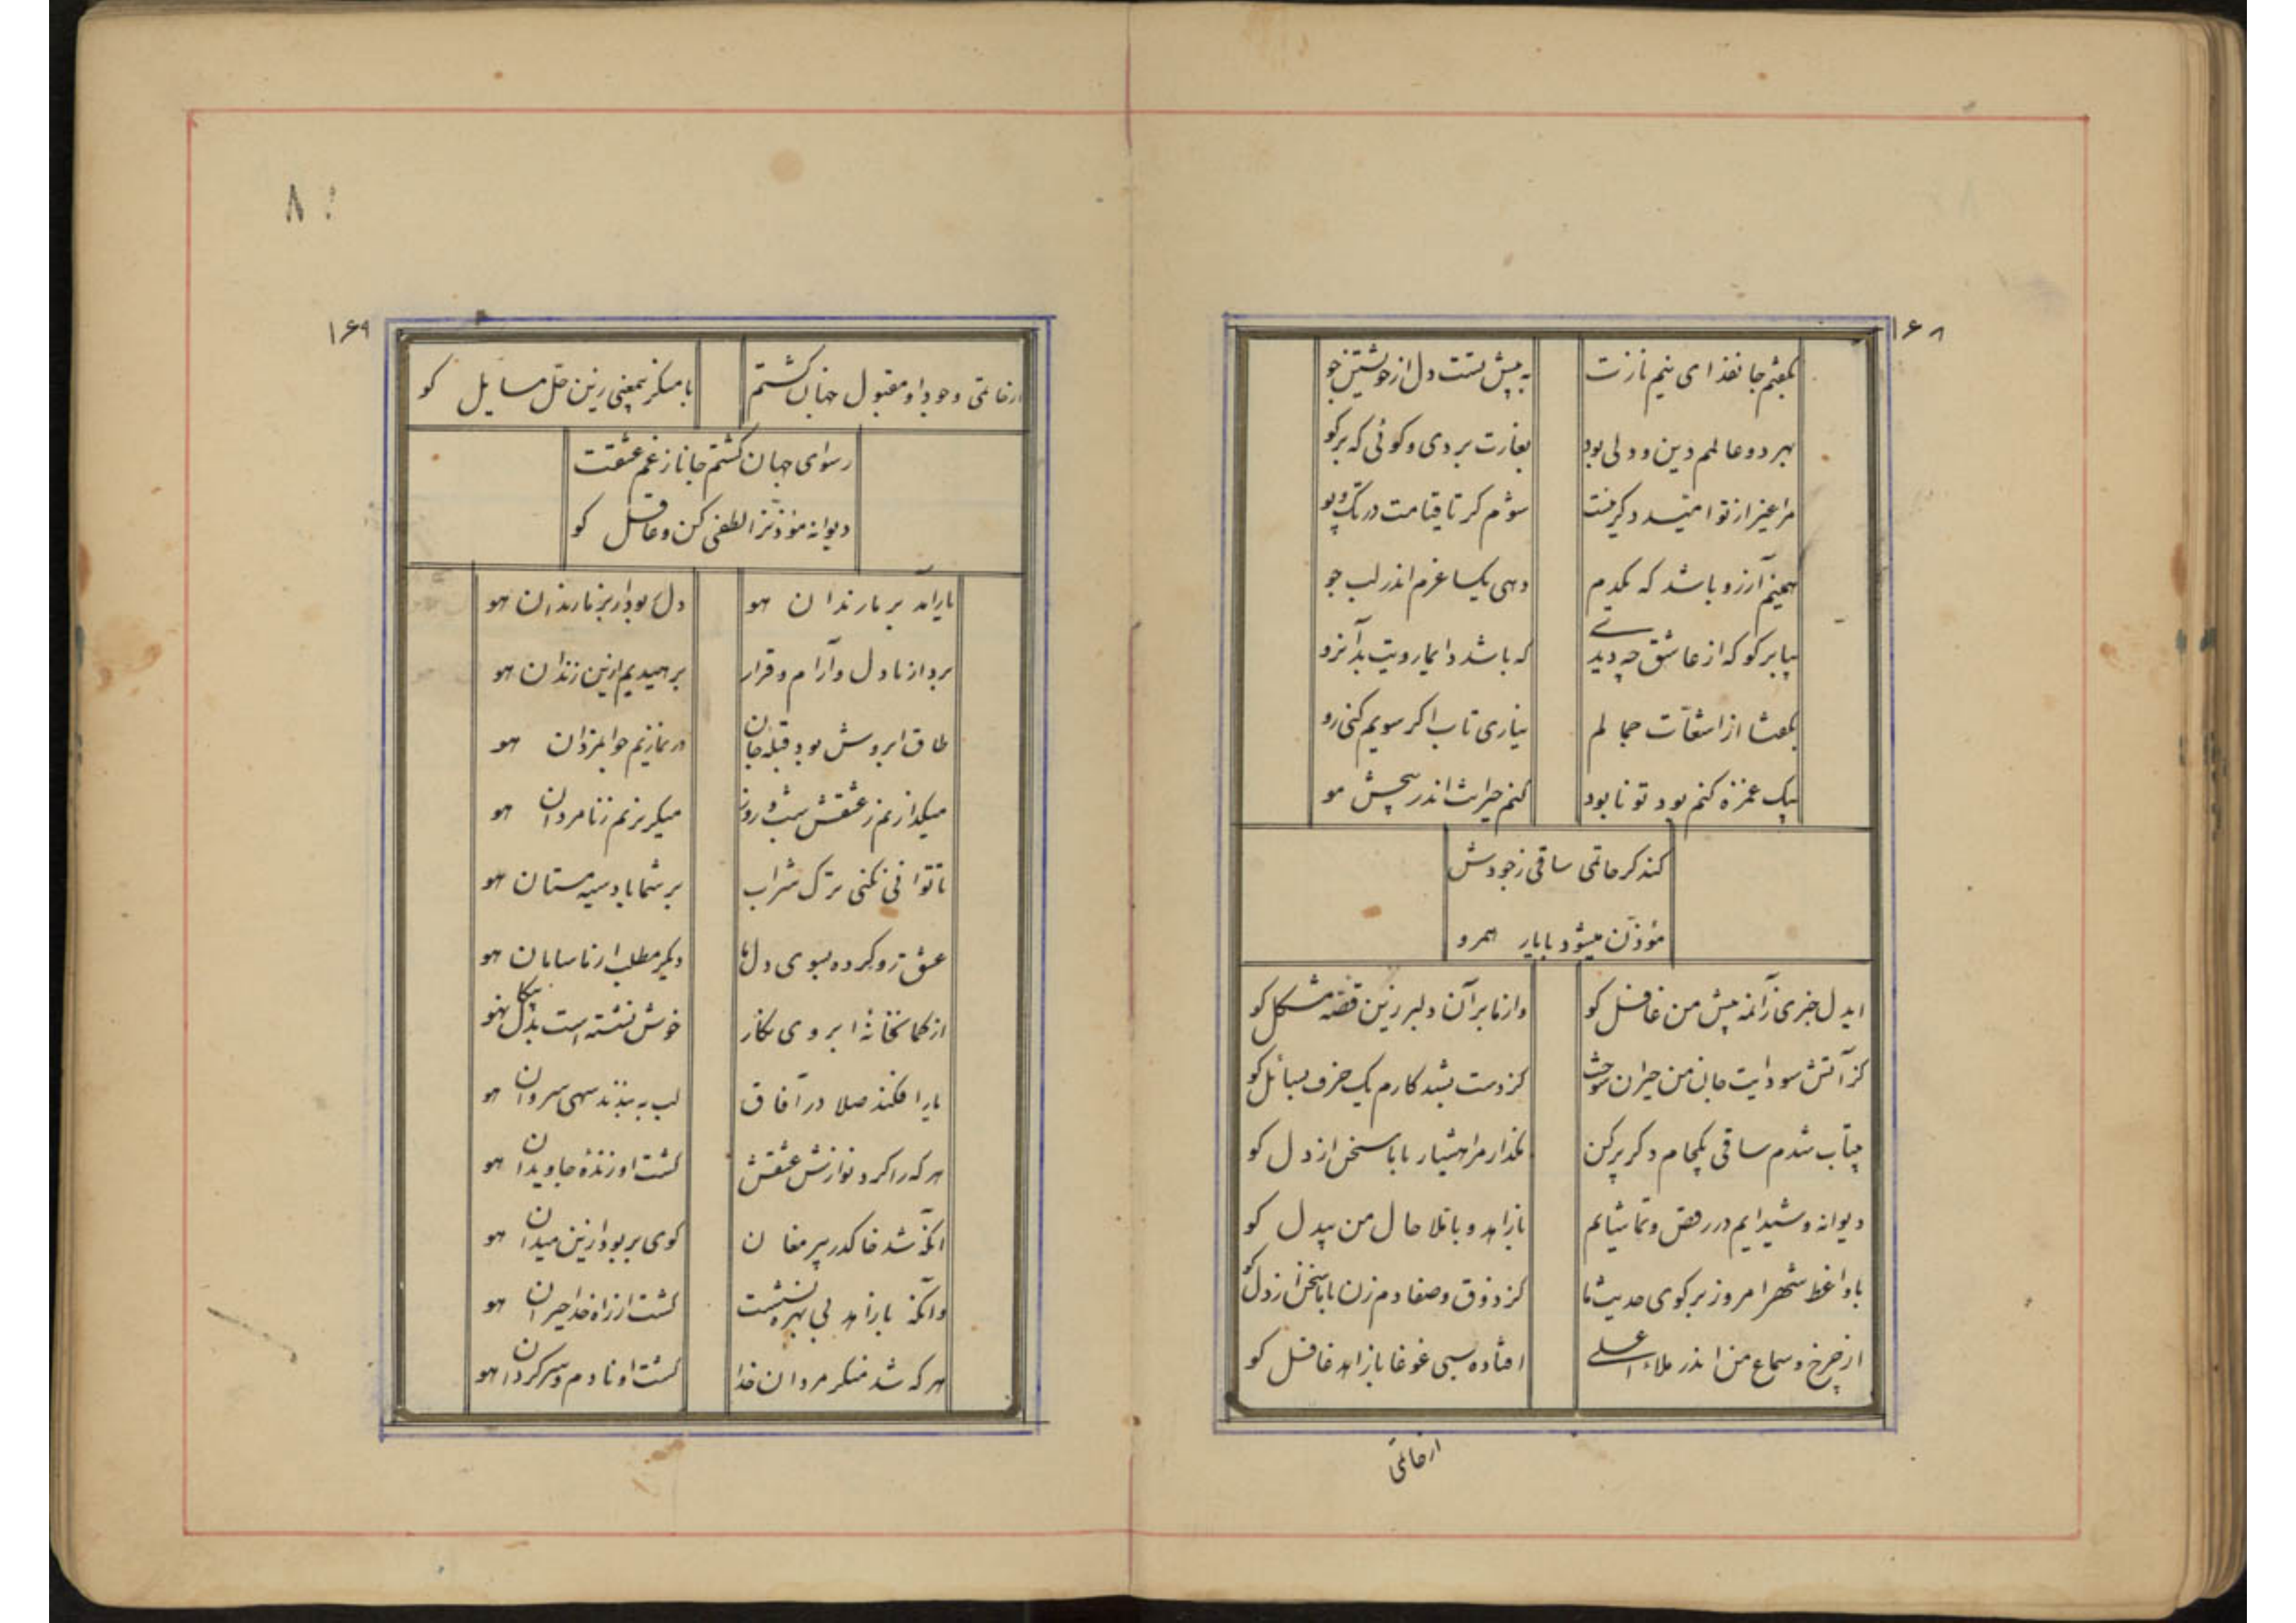 ۱۶۸
بگفتم جانفدای نیم نازت به پیش تست دل از خویشتن جو
بهر دو عالمم دین و دلی بود بغارت بردی و کوئی که برکو
مرا غیر از تو امید دکر نیست شوم کر تا قیامت در تک و پو
همینم آرزو باشد که یکدم دهی یکساغرم اندر لب جو
بیا برکو که از عاشق چه دیدی که باشد دایما رویت بدآنرو
بگفتا از اشعات جمالم نیاری تاب اکر سویم کنی رو
بیک غمزه کنم بود تو نابود کنم حیرانت اندر پیچش مو
کند کر حاتمی ساقی ز جودش
مؤذن میشود با یار همرو
ایدل خبری زآنمه پیش من غافل کو وانا بر آن دلبر زین قصه مشکل کو
کز آتش سودایت جان من حیران سوخت کز دست بشد کارم یک حرف بسائل کو
بیتاب شدم ساقی یکجام دکر پر کن بگذار مرا هشیار با ما سخن از دل کو
دیوانه و شیدایم در رقص و تماشایم با زاهد و با ملا حال من بیدل کو
با واعظ شهر امروز برکوی حدیث ما کز ذوق و صفا دم زن با ما سخن از دل کو
از چرخ و سماع من اندر ملاء اعلی افتاده بسی غوغا با زاهد غافل کو
ارفانی
۱۶۹
ارفانی وجود او مقبول جهان کشتم با منکر بیمعنی زین حل مسایل کو
رسوای جهان کشتم جانا ز غم عشقت
دیوانه مؤذنرا لطفی کن و عاقل کو
یار آمد بر یارندان هو دل بود از بر ما رندان هو
برد از ما دل و آرام و قرار برهیدیم ازین زندان هو
طاق ابروش بود قبله جان در نمازیم جوانمردان هو
میکدازیم ز عشقش شب و روز میکریزیم ز نامردان هو
تا توانی نکنی ترک شراب بر شما باد سیه مستان هو
عشق رو کرده بسوی دلها دیگر مطلب از ما سامان هو
از کمانخانه ابروی نکار خوش نشسته است بدل پیکان هو
یار افکند صلا در آفاق لب به بندند سهی سروان هو
هر که را کرد نوازش عشقش کشت او زنده جاویدان هو
آنکه شد خاک در پیر مغان کوی بربود ازین میدان هو
وآنکه با زاهد بی بهره نشست کشت از راه خدا حیران هو
هر که شد منکر مردان خدا کشت او نادم و سرکردان هو